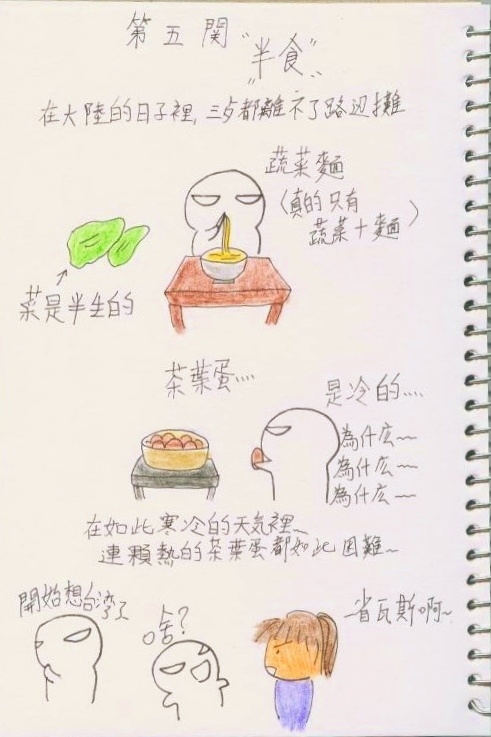 第五關
"半食"
在大陸的日子裡,三歺都離不了路边攤
蔬菜麵
(真的只有
蔬菜+麵)
菜是半生的
茶葉蛋....
是冷的....
為什厷~
為什厷~
為什厷~
在如此寒冷的天氣裡~
連顆熱的茶葉蛋都如此困難~
開始想台湾了
啥?
省瓦斯啊~